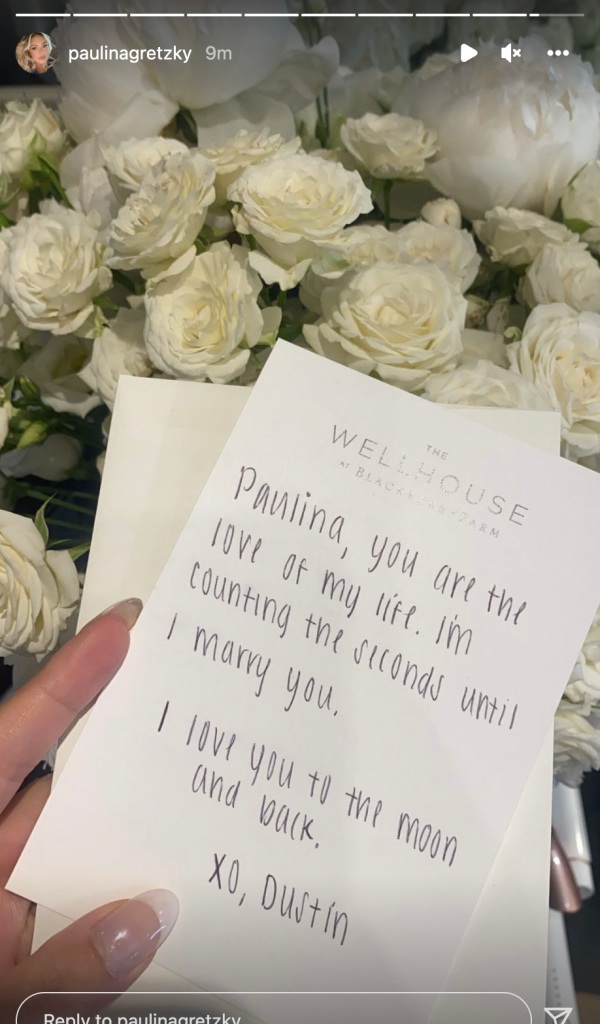 paulinagretzky 9m
THE
WELLHOUSE
AT BLACKBERRY FARM
Paulina, you are the
love of my life. I'm
counting the seconds until
I marry you.
I love you to the moon
and back.
XO, Dustin
Reply to paulinagretzky